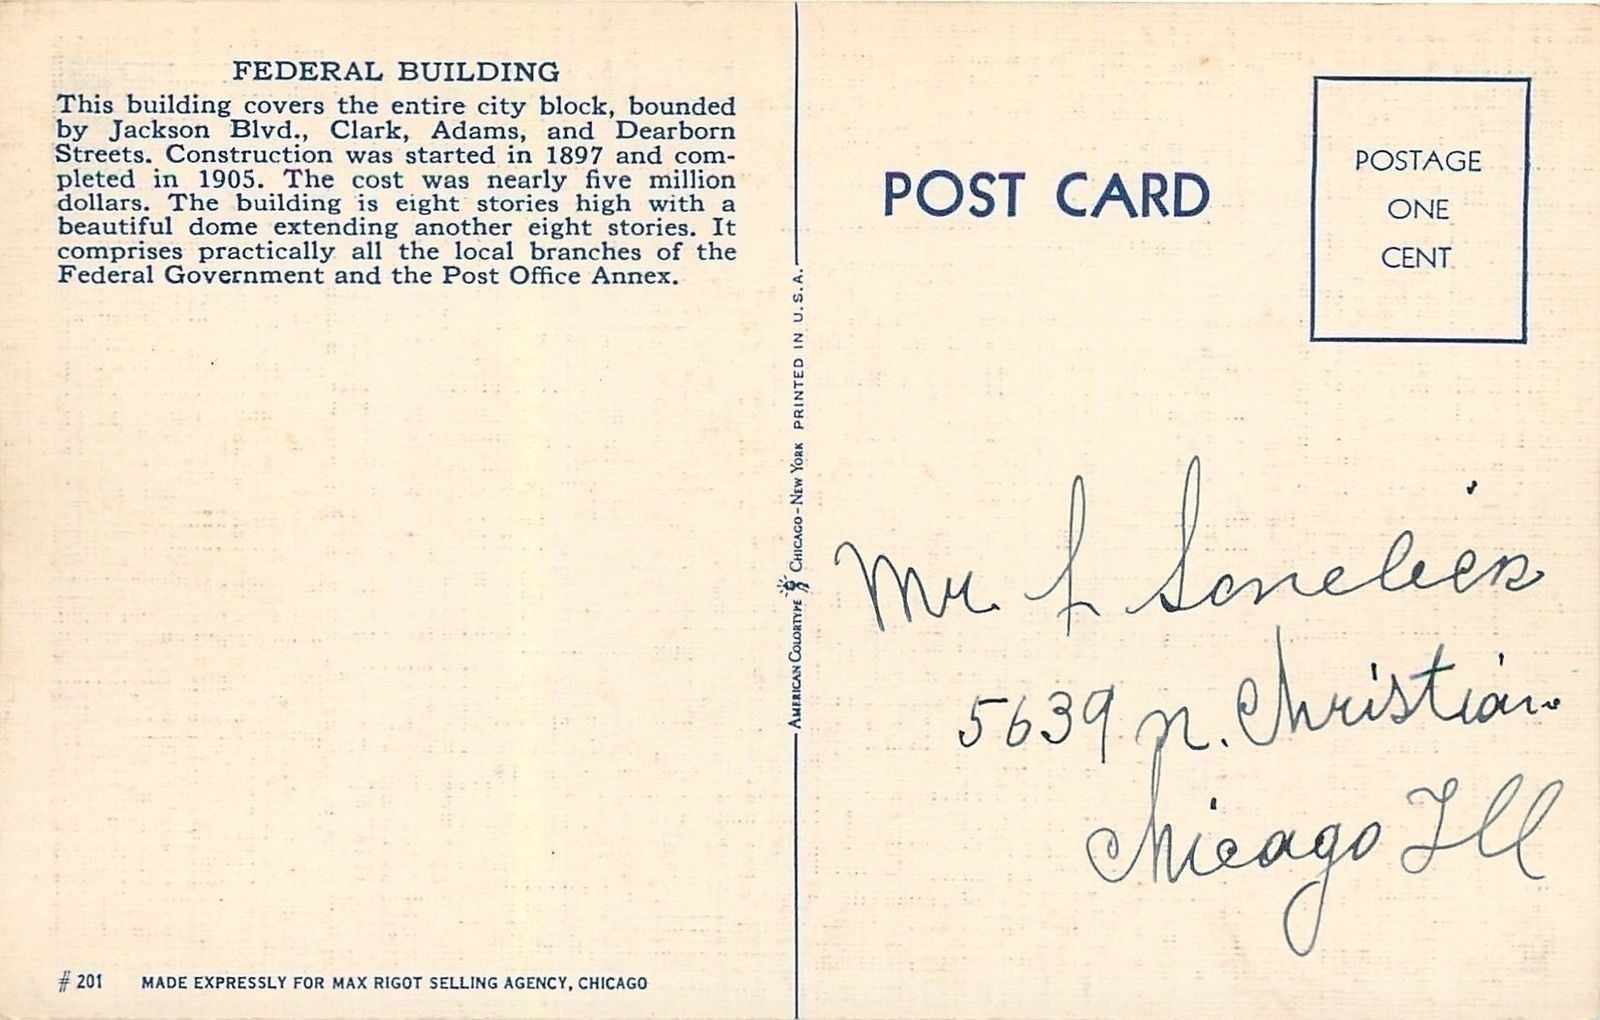 FEDERAL BUILDING
This building covers the entire city block, bounded
by Jackson Blvd., Clark, Adams, and Dearborn
Streets. Construction was started in 1897 and com-
pleted in 1905. The cost was nearly five million
dollars. The building is eight stories high with a
beautiful dome extending another eight stories. It
comprises practically all the local branches of the
Federal Government and the Post Office Annex.
# 201 MADE EXPRESSLY FOR MAX RIGOT SELLING AGENCY, CHICAGO
AMERICAN COLORTYPE CHICAGO - NEW YORK PRINTED IN U.S.A.
POST CARD
POSTAGE
ONE
CENT
Mr.
5639 N. Christian.
Chicago Ill